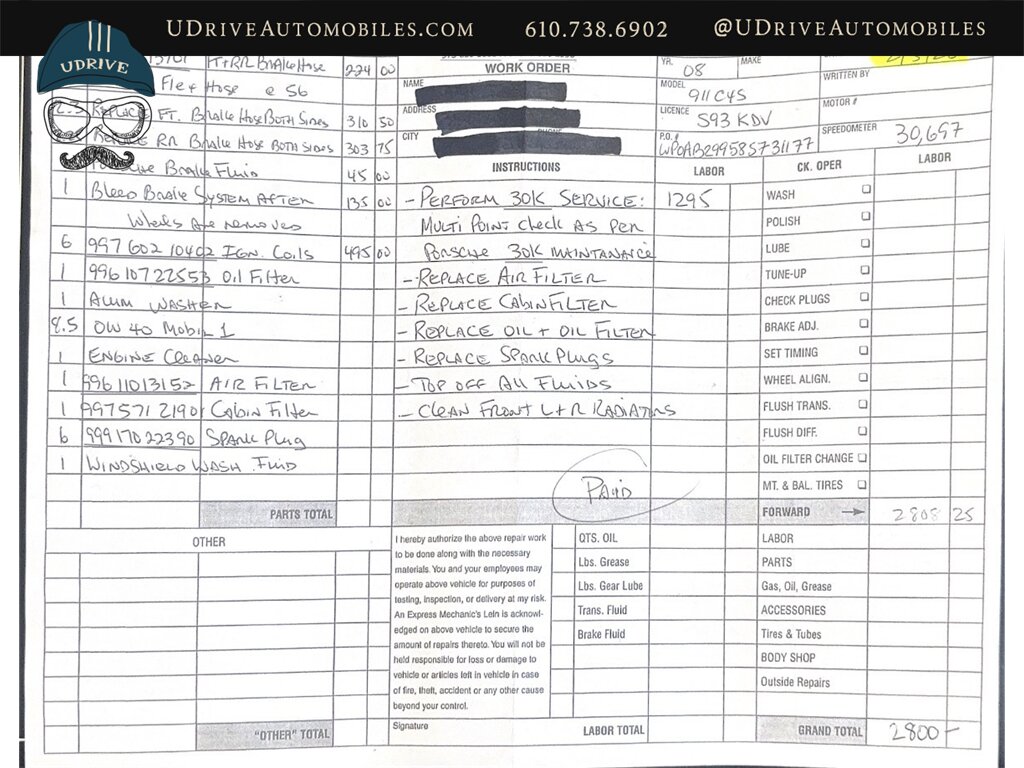 UDRIVEAUTOMOBILES.COM 610.738.6902 @UDRIVEAUTOMOBILES
UDRIVE
FT+RR Brake Hose 224 00
Flex Hose @ 56
REPLACE FT. Brake Hose BOTH Sides 310 50
RR Brake Hose BOTH SIDES 303 75
Brake Fluid 45 00
1 Bleed Brake System AFTER 135 00
Wheels Are removed
6 997 602 10402 Ign. Coils 495 00
1 996 107 22553 Oil Filter
1 Alum WASHER
8.5 0W 40 Mobil 1
1 ENGINE Cleaner
1 996 110 131 52 AIR FILTER
1 997 571 219 01 Cabin Filter
6 999 170 223 90 SPARK Plug
1 WINDSHIELD WASH FLUID
PARTS TOTAL
WORK ORDER
NAME
ADDRESS
CITY
YR. 08
MAKE
MODEL 911 C4S
LICENCE S93 KDV
P.O.# WP0AB29958S731177
WRITTEN BY
MOTOR #
SPEEDOMETER 30,697
INSTRUCTIONS LABOR
- PERFORM 30K SERVICE: 1295
MULTI POINT CHECK AS PER
PORSCHE 30K MAINTANANCE
- REPLACE AIR FILTER
- REPLACE CABIN FILTER
- REPLACE OIL + OIL FILTER
- REPLACE SPARK PLUGS
- TOP OFF All FLUIDS
- CLEAN FRONT L+R RADIATORS
PAID
CK. OPER LABOR
WASH
POLISH
LUBE
TUNE-UP
CHECK PLUGS
BRAKE ADJ.
SET TIMING
WHEEL ALIGN.
FLUSH TRANS.
FLUSH DIFF.
OIL FILTER CHANGE
MT. & BAL. TIRES
FORWARD 2808 25
OTHER
"OTHER" TOTAL
I hereby authorize the above repair work
to be done along with the necessary
materials. You and your employees may
operate above vehicle for purposes of
testing, inspection, or delivery at my risk.
An Express Mechanic's Lein is acknowl-
edged on above vehicle to secure the
amount of repairs thereto. You will not be
held responsible for loss or damage to
vehicle or articles left in vehicle in case
of fire, theft, accident or any other cause
beyond your control.
Signature
QTS. OIL
Lbs. Grease
Lbs. Gear Lube
Trans. Fluid
Brake Fluid
LABOR TOTAL
LABOR
PARTS
Gas, Oil, Grease
ACCESSORIES
Tires & Tubes
BODY SHOP
Outside Repairs
GRAND TOTAL 2800-